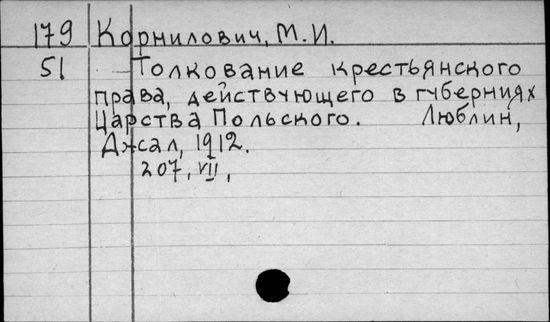 179 Корнилович, М.И.
51 Толкование крестьянского
права, действующего в губерниях
Царства Польского. Люблин,
Джал, 1912.
207, VII,